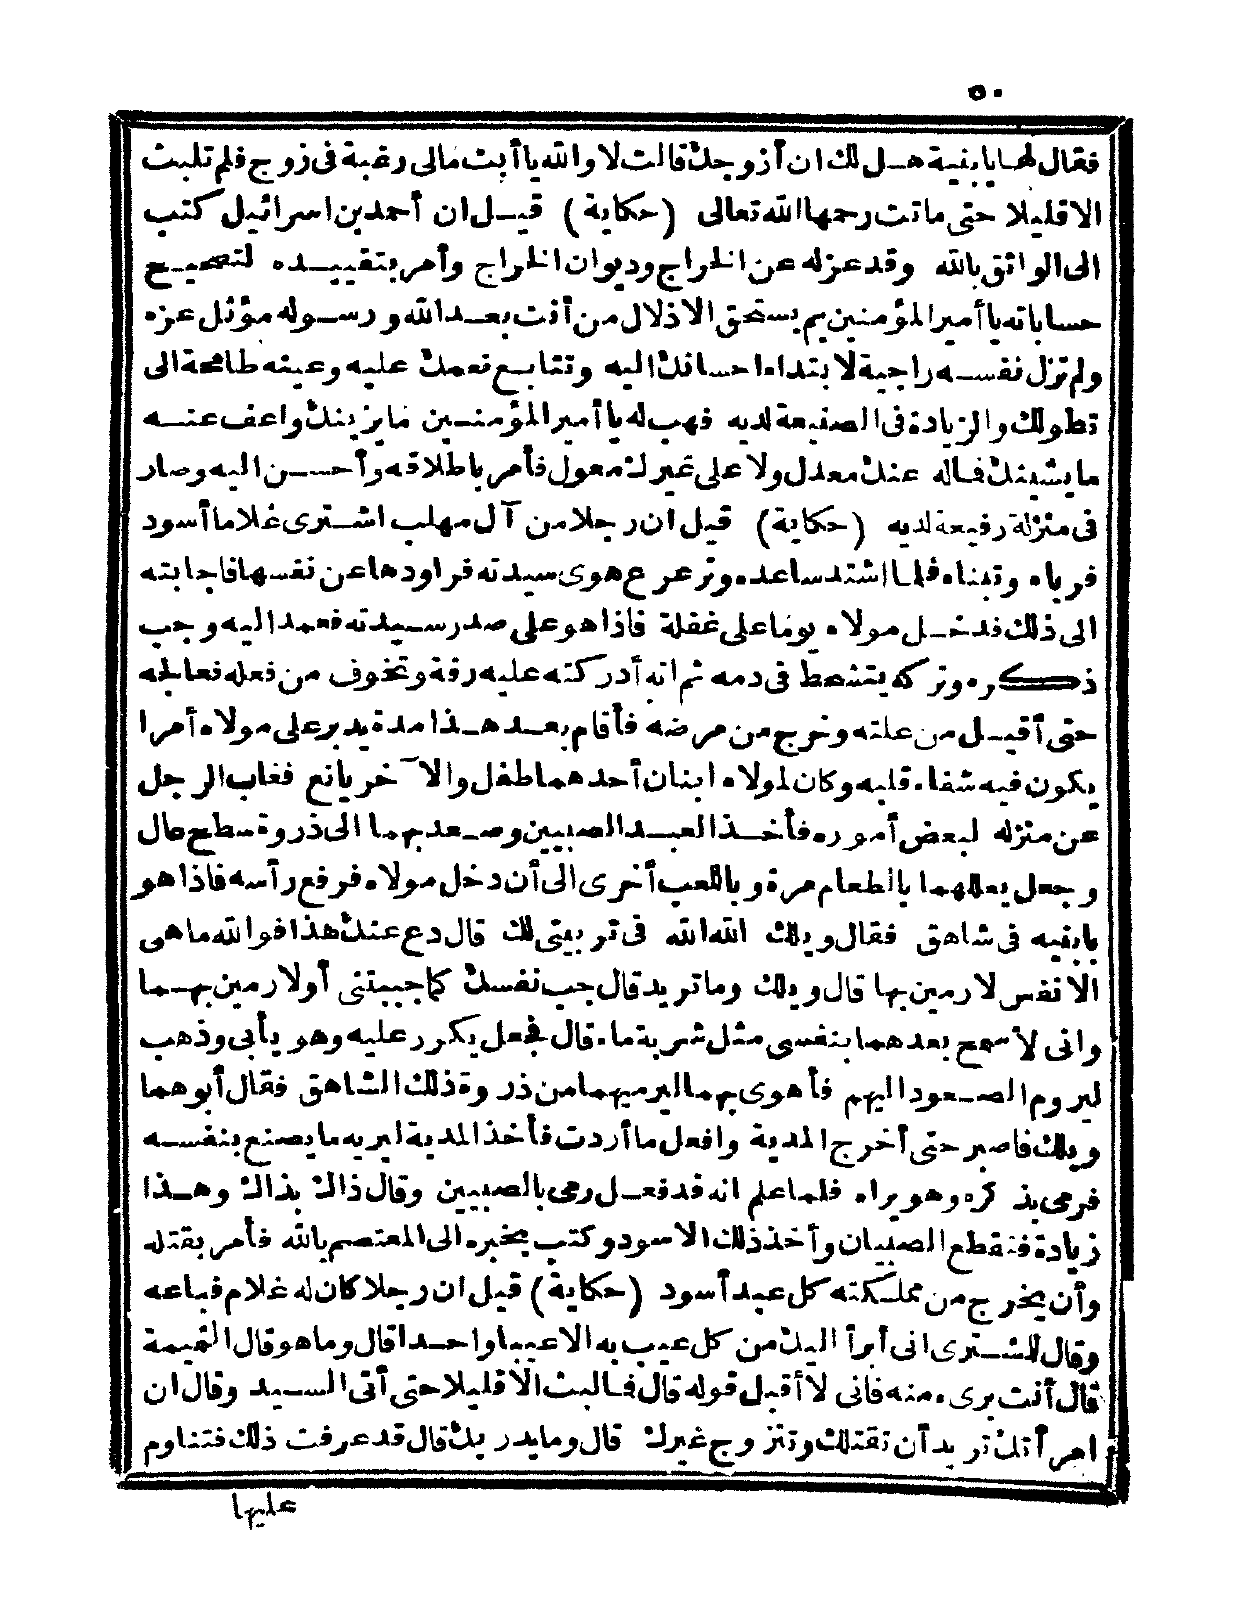 ٥٠
فقال لها يا بنية هل لك ان أزوجك قالت لا والله يا أبت مالى رغبة فى زوج فلم تلبث
الا قليلا حتى ماتت رحمها الله تعالى (حكاية) قيل ان أحمد بن اسرائيل كتب
الى الواثق بالله وقد عزله عن الخراج وديوان الخراج وأمر بتقييده لتصحيح
حساباته يا أمير المؤمنين بم يستحق الاذلال من أنت بعد الله ورسوله موئل عزه
ولم تزل نفسه راجية لابتداء احسانك اليه وتتابع نعمك عليه وعينه طامحة الى
تطولك والزيادة فى الصنيعة لديه فهب له يا أمير المؤمنين ما يزينك واعف عنه
ما يشينك فماله عنك معدل ولا على غيرك معول فأمر باطلاقه وأحسن اليه وصار
فى منزلة رفيعة لديه (حكاية) قيل ان رجلا من آل مهلب اشترى غلاما أسود
فرباه وتبناه فلما اشتد ساعده وترعرع هوى سيدته فراودها عن نفسها فاجابته
الى ذلك فدخل مولاه يوما على غفلة فاذا هو على صدر سيدته فعمد اليه وجب
ذكره وتركه يتشحط فى دمه ثم انه أدركته عليه رقة وتخوف من فعله فعالجه
حتى أقيل من علته وخرج من مرضه فأقام بعد هذا مدة يدبر على مولاه أمرا
يكون فيه شفاء قلبه وكان لمولاه ابنان أحدهما طفل والآخر يانع فغاب الرجل
عن منزله لبعض أموره فأخذ العبد الصبيين وصعد بهما الى ذروة سطح عال
وجعل يعللهما بالطعام مرة وباللعب أخرى الى أن دخل مولاه فرفع رأسه فاذا هو
بابنيه فى شاهق فقال ويلك الله الله فى تربيتى لك قال دع عنك هذا فوالله ما هى
الا نفس لارمين بها قال ويلك وما تريد قال جب نفسك كما جببتنى أو لارمين بهما
وانى لأسمح بعدهما بنفسى مثل شربة ماء قال فجعل يكرر عليه وهو يأبى وذهب
ليروم الصعود اليهم فأهوى بهما ليرميهما من ذروة ذلك الشاهق فقال أبوهما
ويلك فاصبر حتى أخرج المدية وافعل ما أردت فأخذ المدية ليريه ما يصنع بنفسه
فرمى بذكره وهو يراه فلما علم انه قد فعل رمى بالصبيين وقال ذاك بذاك وهذا
زيادة فتقطع الصبيان وأخذ ذلك الاسود وكتب بخبره الى المعتصم بالله فأمر بقتله
وأن يخرج من مملكته كل عبد أسود (حكاية) قيل ان رجلا كان له غلام فباعه
وقال للمشترى انى أبرأ اليك من كل عيب به الا عيبا واحدا قال وما هو قال النميمة
قال أنت برىء منه فانى لا أقبل قوله قال فما لبث الا قليلا حتى أتى السيد وقال ان
امرأتك تريد أن تقتلك وتتزوج غيرك قال وما يدريك قال قد عرفت ذلك فتناوم
عليها